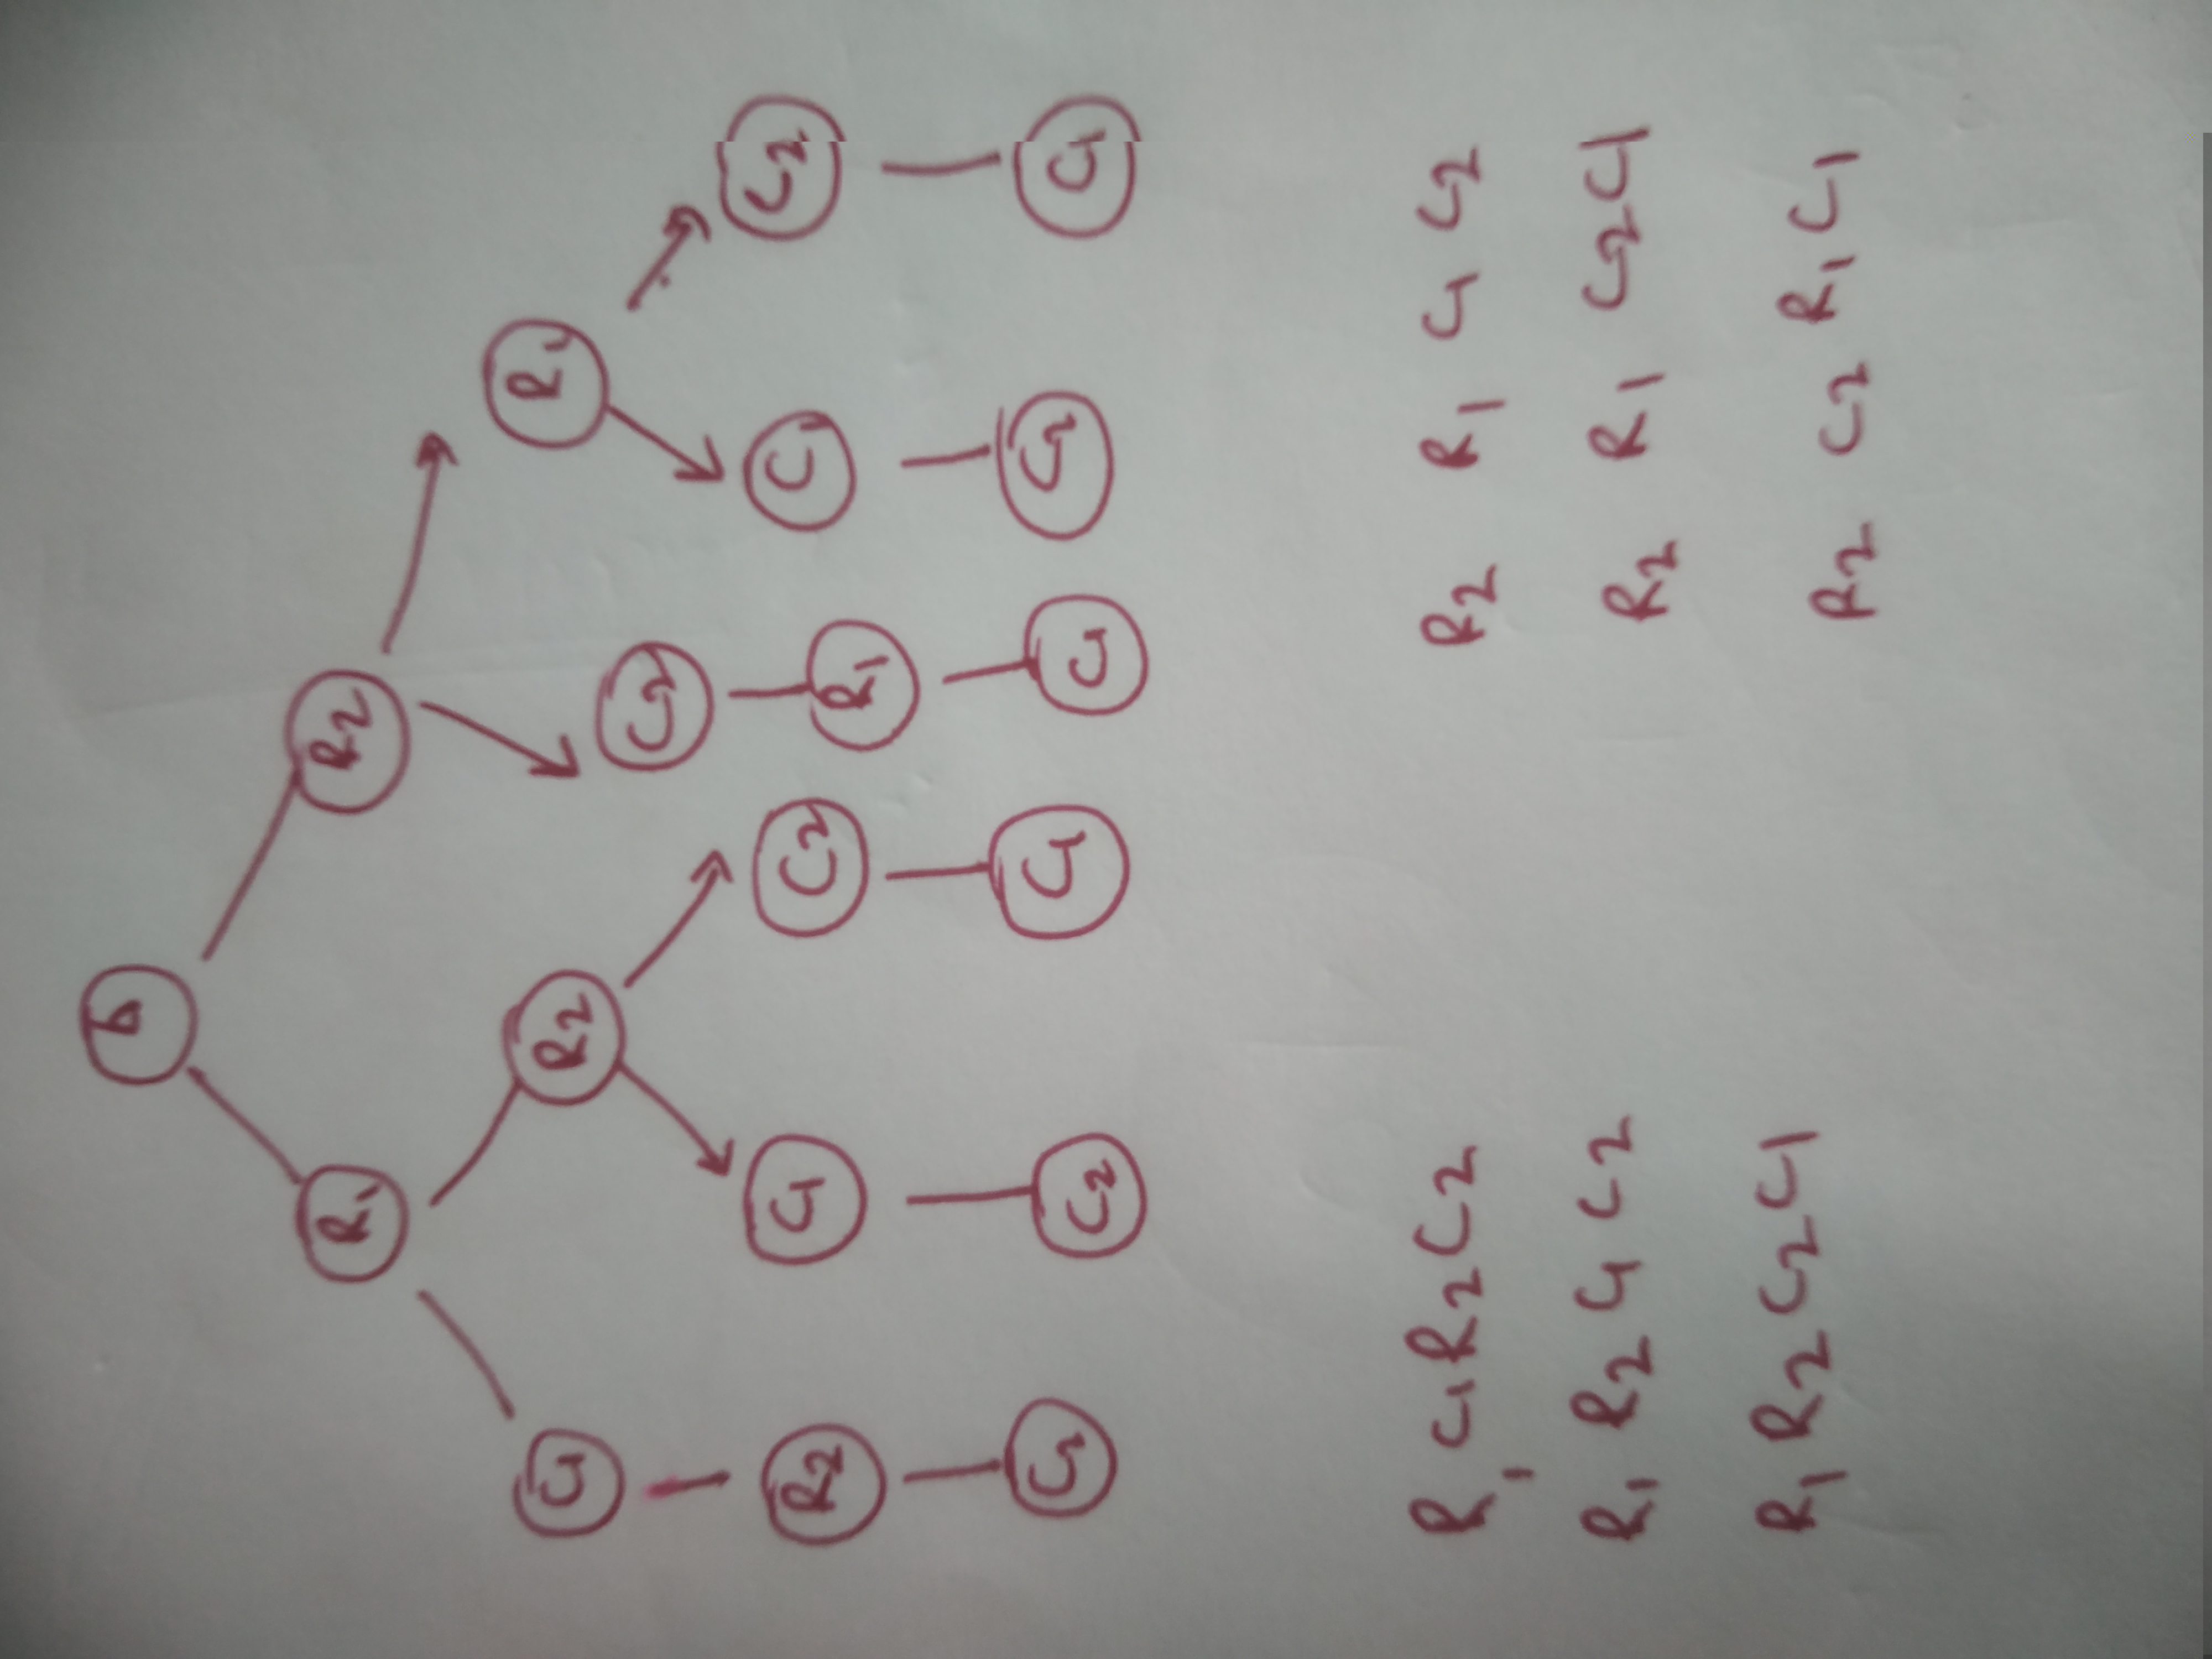 D
R1 R2
C1 R2 C2 R1
R2 C1 C2 R1 C1 C2
C2 C2 C1 C1 C2 C1
R1 C1 R2 C2
R1 R2 C1 C2
R1 R2 C2 C1
R2 R1 C1 C2
R2 R1 C2 C1
R2 C2 R1 C1